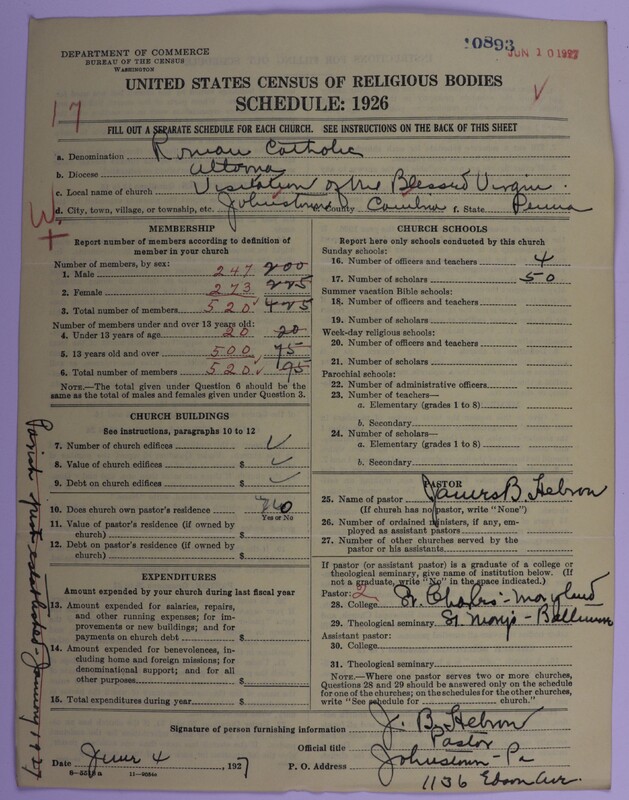 10893
JUN 10 1927
DEPARTMENT OF COMMERCE
BUREAU OF THE CENSUS
WASHINGTON
UNITED STATES CENSUS OF RELIGIOUS BODIES
SCHEDULE: 1926
17
FILL OUT A SEPARATE SCHEDULE FOR EACH CHURCH. SEE INSTRUCTIONS ON THE BACK OF THIS SHEET
a. Denomination Roman Catholic
b. Diocese Altoona
c. Local name of church Visitation of the Blessed Virgin.
d. City, town, village, or township, etc. Johnstown County Cambria f. State Penna
MEMBERSHIP
Report number of members according to definition of
member in your church
Number of members, by sex:
1. Male 247 200
2. Female 273 225
3. Total number of members 520 425
Number of members under and over 13 years old:
4. Under 13 years of age 20 20
5. 13 years old and over 500 75
6. Total number of members 520 95
NOTE.—The total given under Question 6 should be the
same as the total of males and females given under Question 3.
CHURCH BUILDINGS
See instructions, paragraphs 10 to 12
7. Number of church edifices
8. Value of church edifices $
9. Debt on church edifices $
10. Does church own pastor's residence No
Yes or No
11. Value of pastor's residence (if owned by
church) $
12. Debt on pastor's residence (if owned by
church) $
EXPENDITURES
Amount expended by your church during last fiscal year
13. Amount expended for salaries, repairs,
and other running expenses; for im-
provements or new buildings; and for
payments on church debt $
14. Amount expended for benevolences, in-
cluding home and foreign missions; for
denominational support; and for all
other purposes $
15. Total expenditures during year $
Parish just established January 1927
CHURCH SCHOOLS
Report here only schools conducted by this church
Sunday schools:
16. Number of officers and teachers 4
17. Number of scholars 50
Summer vacation Bible schools:
18. Number of officers and teachers
19. Number of scholars
Week-day religious schools:
20. Number of officers and teachers
21. Number of scholars
Parochial schools:
22. Number of administrative officers
23. Number of teachers—
a. Elementary (grades 1 to 8)
b. Secondary
24. Number of scholars—
a. Elementary (grades 1 to 8)
b. Secondary
PASTOR
25. Name of pastor James B. Hebron
(If church has no pastor, write "None")
26. Number of ordained ministers, if any, em-
ployed as assistant pastors
27. Number of other churches served by the
pastor or his assistants
If pastor (or assistant pastor) is a graduate of a college or
theological seminary, give name of institution below. (If
not a graduate, write "No" in the space indicated.)
Pastor: 2
28. College St. Charles - Maryland
29. Theological seminary St. Mary's - Baltimore
Assistant pastor:
30. College
31. Theological seminary
NOTE.—Where one pastor serves two or more churches,
Questions 28 and 29 should be answered only on the schedule
for one of the churches; on the schedules for the other churches,
write "See schedule for church."
Signature of person furnishing information J. B. Hebron
Official title Pastor
Date June 4, 1927 P. O. Address Johnstown - Pa
1136 Edson Ave.